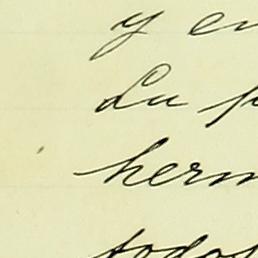 y en
Lu p
herm
todos